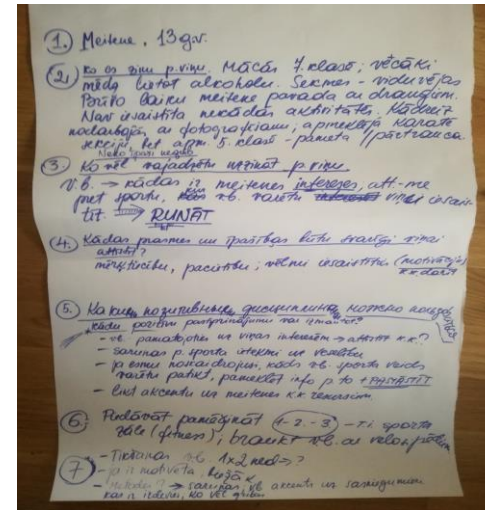 1. Meitene, 13 g.v.
2. ko es zinu p. viņu. Mācās 7. klasē; vecāki
mēdz lietot alkoholu. Sekmes - viduvējas
Brīvo laiku meitene pavada ar draugiem.
Nav iesaistīta nekādās aktivitātēs. Kādreiz
nodarbojās ar fotografēšanu; apmeklēja karatē
sekciju, bet apm. 5. klasē - pameta //pārtrauca
Neko īpaši negrib
3. Ko vēl vajadzētu uzzināt p. viņu
V.b. → kādas ir meitenes intereses, att-me
pret sportu, v.b. varētu viņu iesais-
tīt. → RUNĀT
4. Kādas prasmes un īpašības būtu svarīgi viņai
attīstīt?
mērķtiecību, pacietību; vēlmi iesaistīties (motivāciju)
k.k. darīt
5. Какие позитивные дисциплины можно
kādu pozitīvu pastiprinājumu var izmantot?
- v.b. pamatojoties uz viņas interesēm → attīstīt k.k.?
- sarunas p. sporta ietekmi uz veselību
- ja esmu noskaidrojusi, kāds v.b. sporta veids
varētu patikt, pameklēt info p to + PAMATĪT
- likt akcentu uz meitenes k.k.
6. Piedāvāt pamēģināt 1-2-3 - TĪ sporta
zāle (fitness); braukt v.b. ar velosipēdu
7 - Tikšanās v.b. 1x2 ned→?
- ja ir motivēta, biežāk
- → sarunas, v.b. akcents uz sasniegumiem
kas ir izdevies, ko vēl gribas